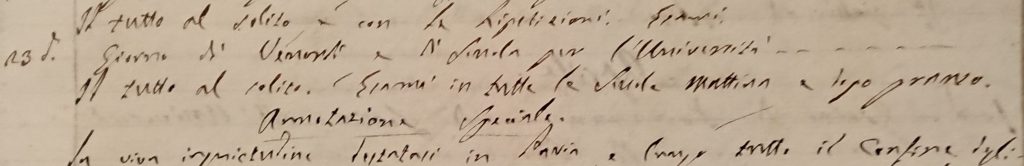 Il tutto al solito e con le Ripetizioni. Esami.
23 d. Giorno di Venerdì e di Scuola per l'Università - - - - - - -
Il tutto al solito. Esami in tutte le Scuole mattina e dopo pranzo.
Annotazione Speciale.
La viva inquietudine in Pavia e lungo tutto il Confine degli